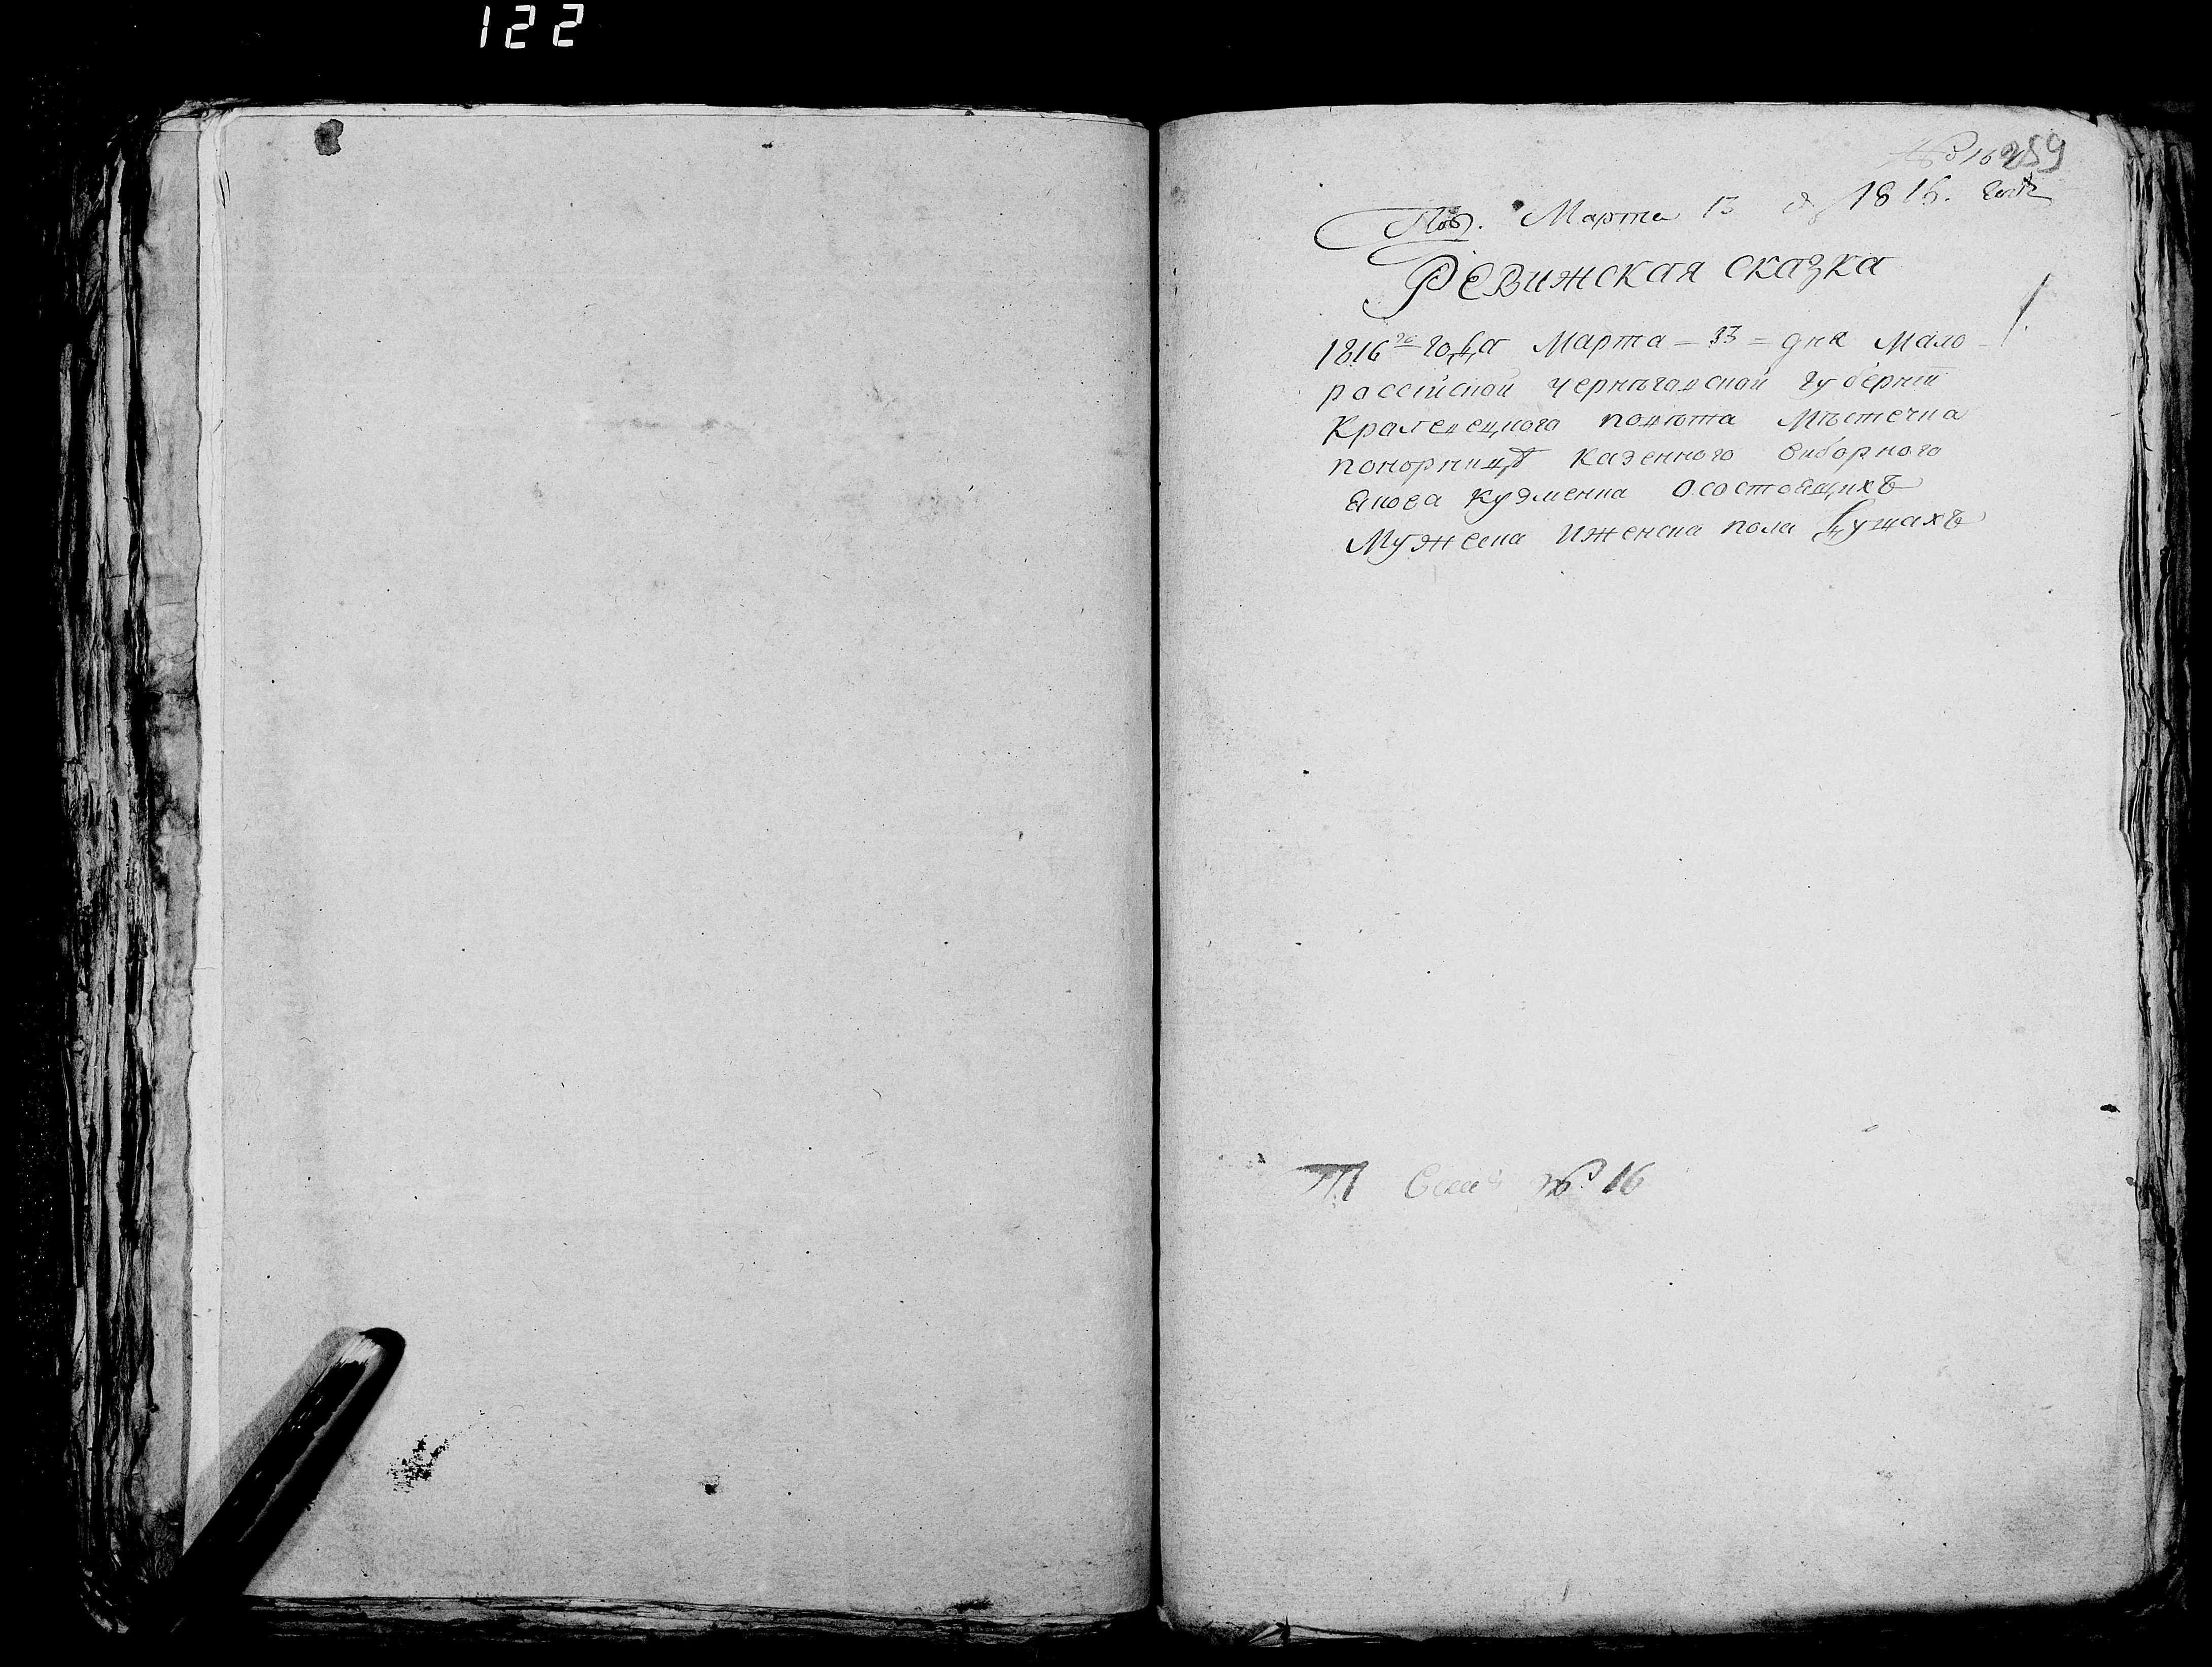 122
№ 16 259
Под. Марта 13 д 1816. года
Ревижская сказка
1816го года Марта - 13 = дня Мало-
російской черниговской губерніи
Кролевецкого повѣта Мѣстечка
понорницѣ казенного виборного
Якова кузменка Осостоящихъ
Мужеска Иженска пола душахъ
№ 16